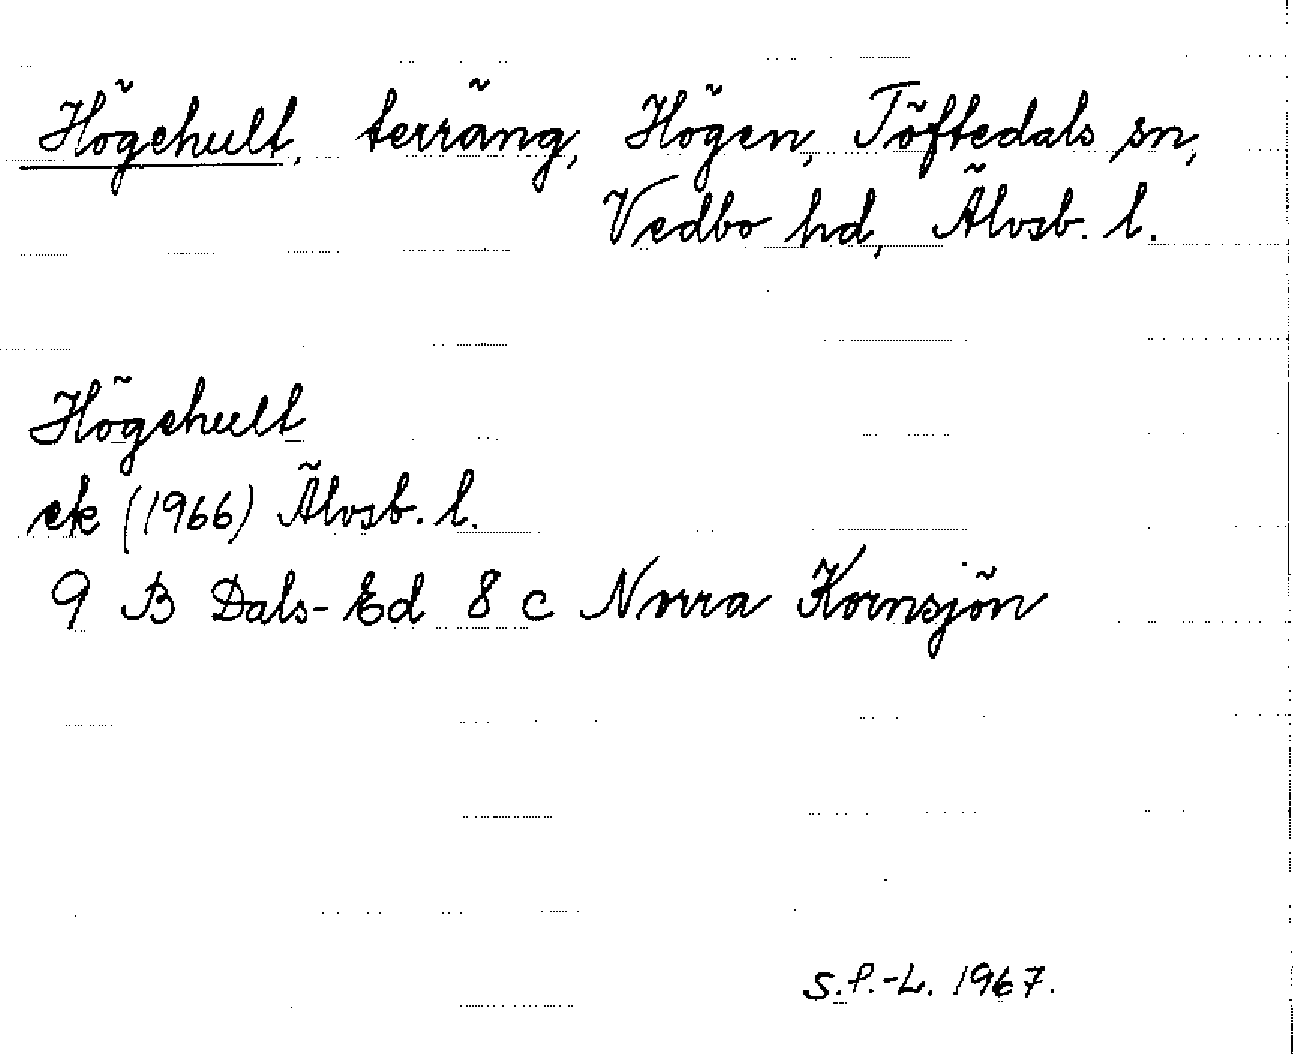 Högehult, terräng, Högen, Töftedals sn,
Vedbo hd, Älvsb. l.
Högehult
ek (1966) Älvsb. l.
9 B Dals-Ed 8 c Norra Kornsjön
S.P.-L. 1967.